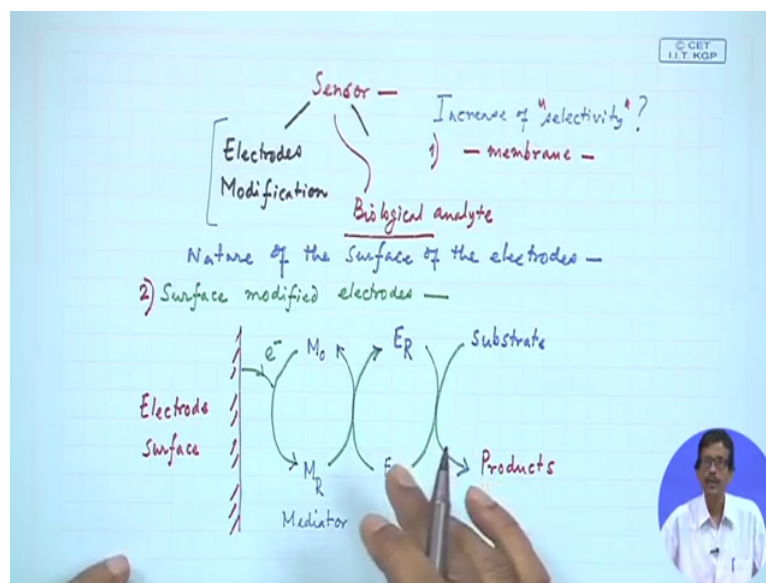 © CET
I.I.T. KGP
Sensor —
Increase of "selectivity"?
Electrodes
Modification
1) — membrane —
Biological analyte
Nature of the surface of the electrodes —
2) Surface modified electrodes —
e⁻ M₀ E_R Substrate
Electrode
Surface
M_R E Products
Mediator